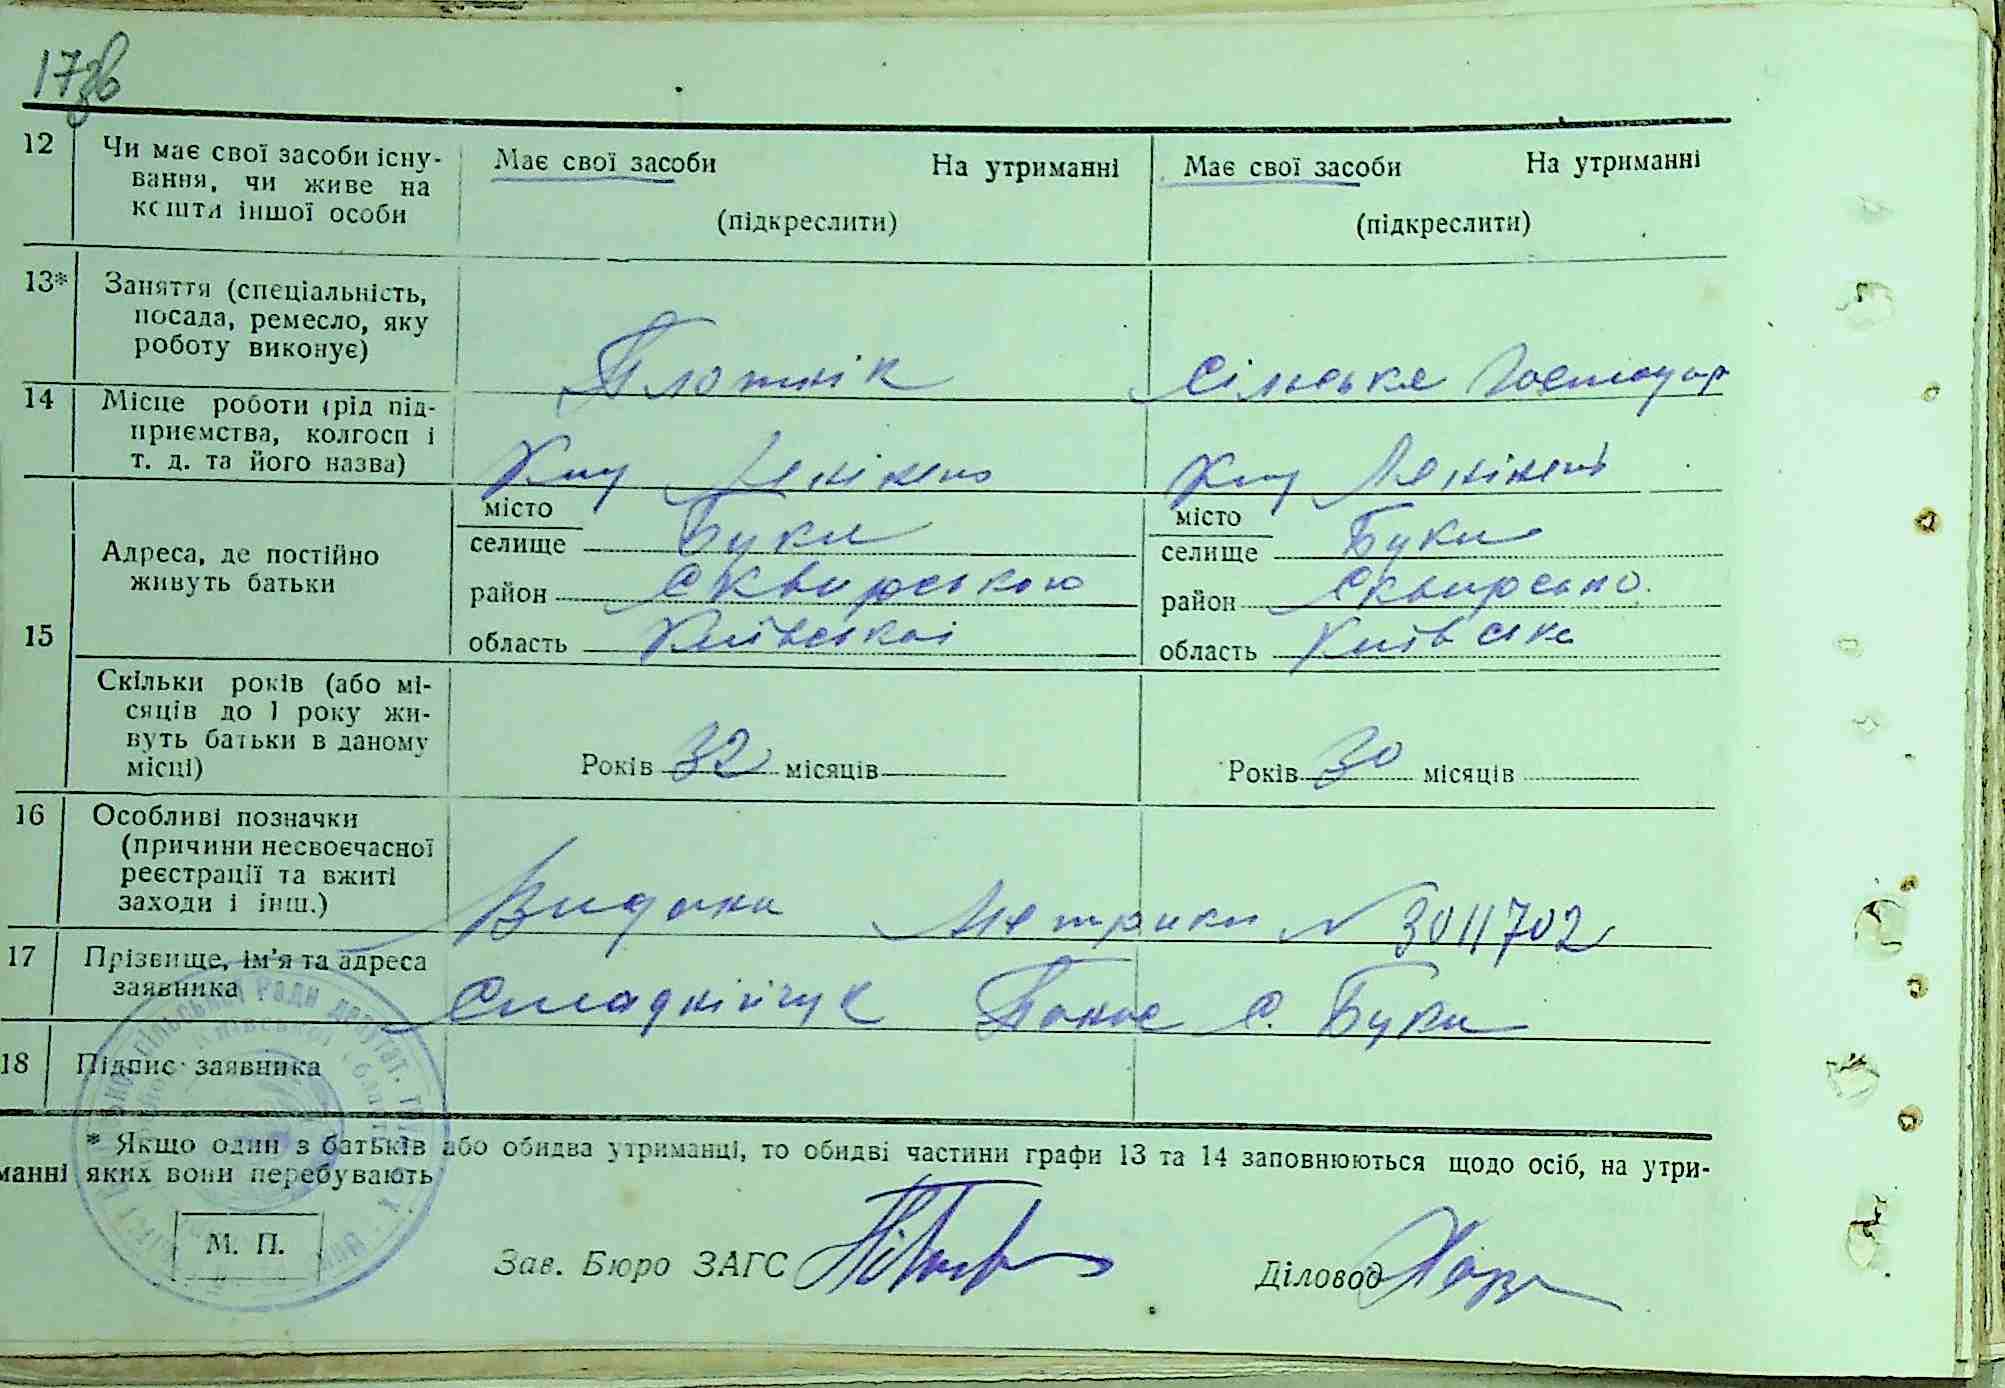 17зв
12 Чи має свої засоби існу- Має свої засоби На утриманні Має свої засоби На утриманні
вання, чи живе на
кошти іншої особи (підкреслити) (підкреслити)
13* Заняття (спеціальність,
посада, ремесло, яку
роботу виконує) Плотнік Сільське Господар
14 Місце роботи (рід під-
приємства, колгосп і
т. д. та його назва)
місто місто
селище Буки селище Буки
Адреса, де постійно
живуть батьки
район Сквирського район Сквирсько
15 область Київської область Київська
Скільки років (або мі-
сяців до 1 року жи-
вуть батьки в даному
місці) Років 32 місяців Років 30 місяців
16 Особливі позначки
(причини несвоєчасної
реєстрації та вжиті
заходи і інш.) Видани Метрики N 3011702
17 Прізвище, ім'я та адреса
заявника с. Буки
18 Підпис заявника
* Якщо один з батьків або обидва утриманці, то обидві частини графи 13 та 14 заповнюються щодо осіб, на утри-
манні яких вони перебувають
М. П.
Зав. Бюро ЗАГС Діловод